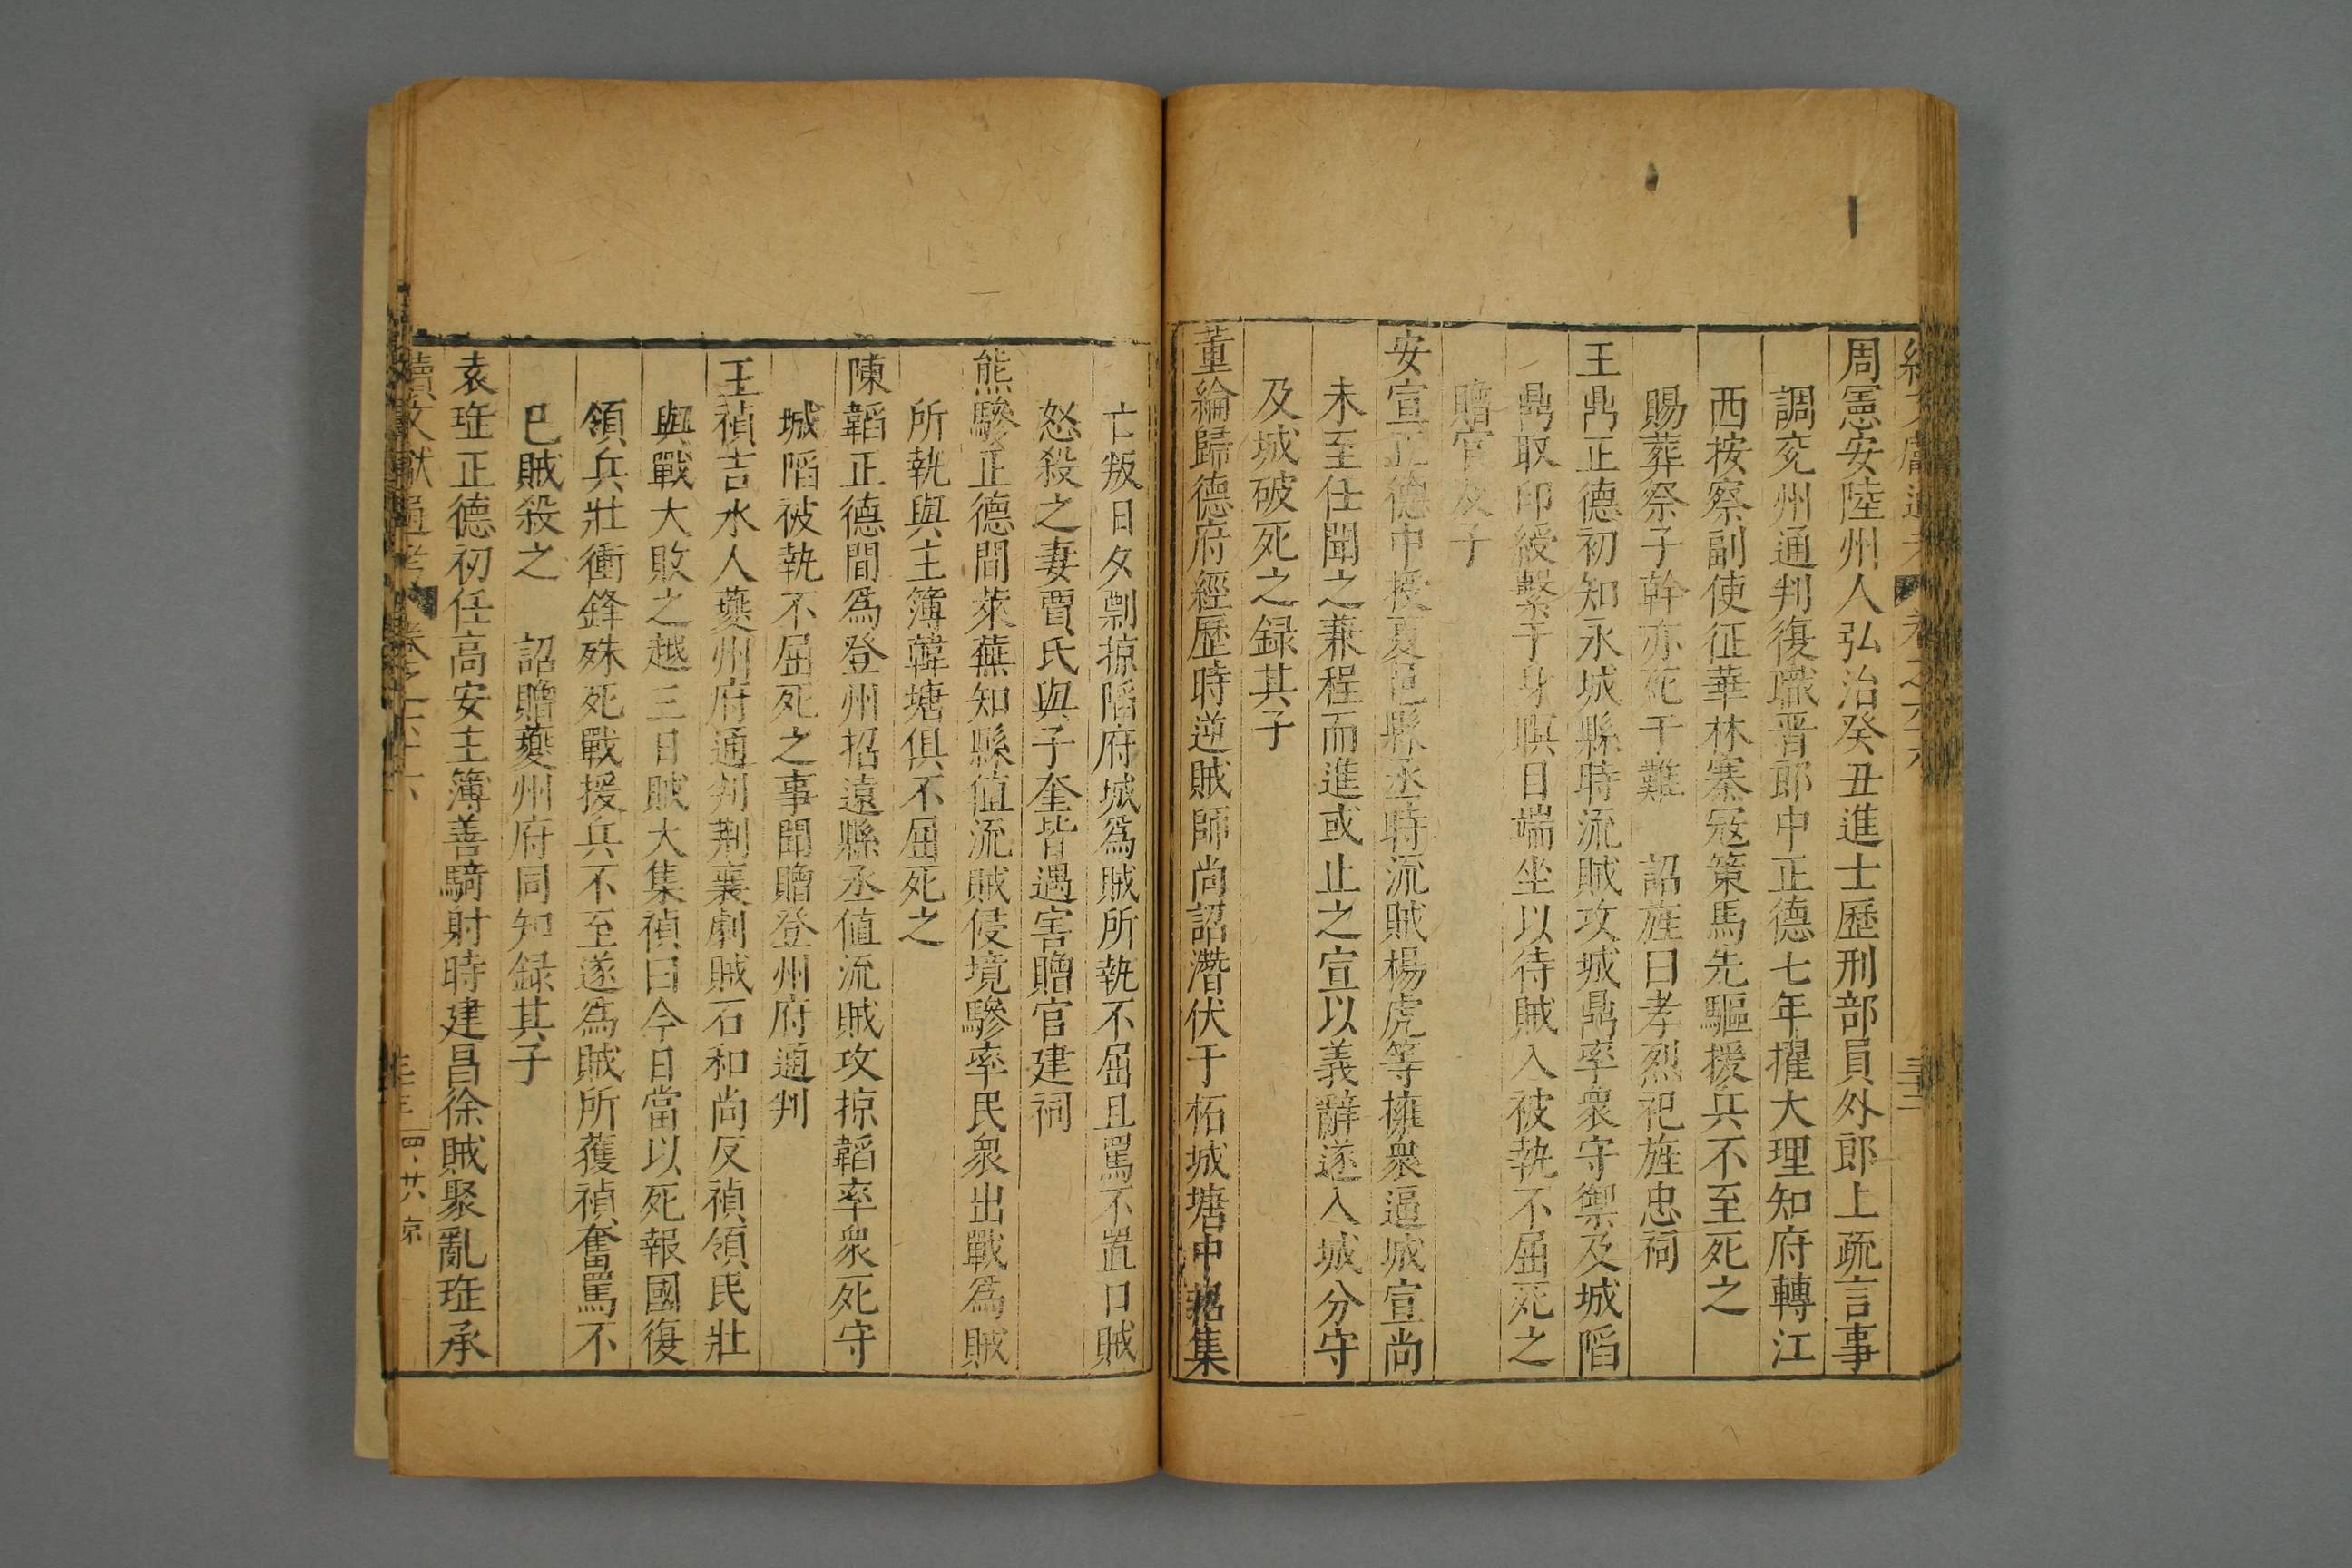 周憲安陸州人弘治癸丑進士歷刑部員外郎上疏言事
調兖州通判復職晋郎中正德七年擢大理知府轉江
西按察副使征華林寨寇策馬先驅援兵不至死之
賜葬祭子幹亦死于難 詔旌曰孝烈祀旌忠祠
王鼎正德初知永城縣時流賊攻城鼎率衆守禦及城陷
鼎取印綬繫于身瞑目端坐以待賊入被執不屈死之
贈官及子
安宣正德中授夏邑縣丞時流賊楊虎等擁衆逼城宣尚
未至仕聞之兼程而進或止之宣以義辭遂入城分守
及城破死之録其子
董綸歸德府經歷時逆賊師尚詔潛伏于柘城塘中招集
亡叛日夕剽掠陷府城爲賊所執不屈且罵不置口賊
怒殺之妻賈氏與子奎皆遇害贈官建祠
熊驂正德間萊蕪知縣值流賊侵境驂率民衆出戰爲賊
所執與主簿韓塘俱不屈死之
陳韜正德間爲登州招遠縣丞值流賊攻掠韜率衆死守
城陷被執不屈死之事聞贈登州府通判
王禎吉水人夔州府通判荆襄劇賊石和尚反禎領民壯
與戰大敗之越三日賊大集禎曰今日當以死報國復
領兵壯衝鋒殊死戰援兵不至遂爲賊所獲禎奮罵不
已賊殺之 詔贈夔州府同知録其子
袁珄正德初任高安主簿善騎射時建昌徐賊聚亂珄承
續文獻通考 卷之六十六 三十三 四·廿八 京